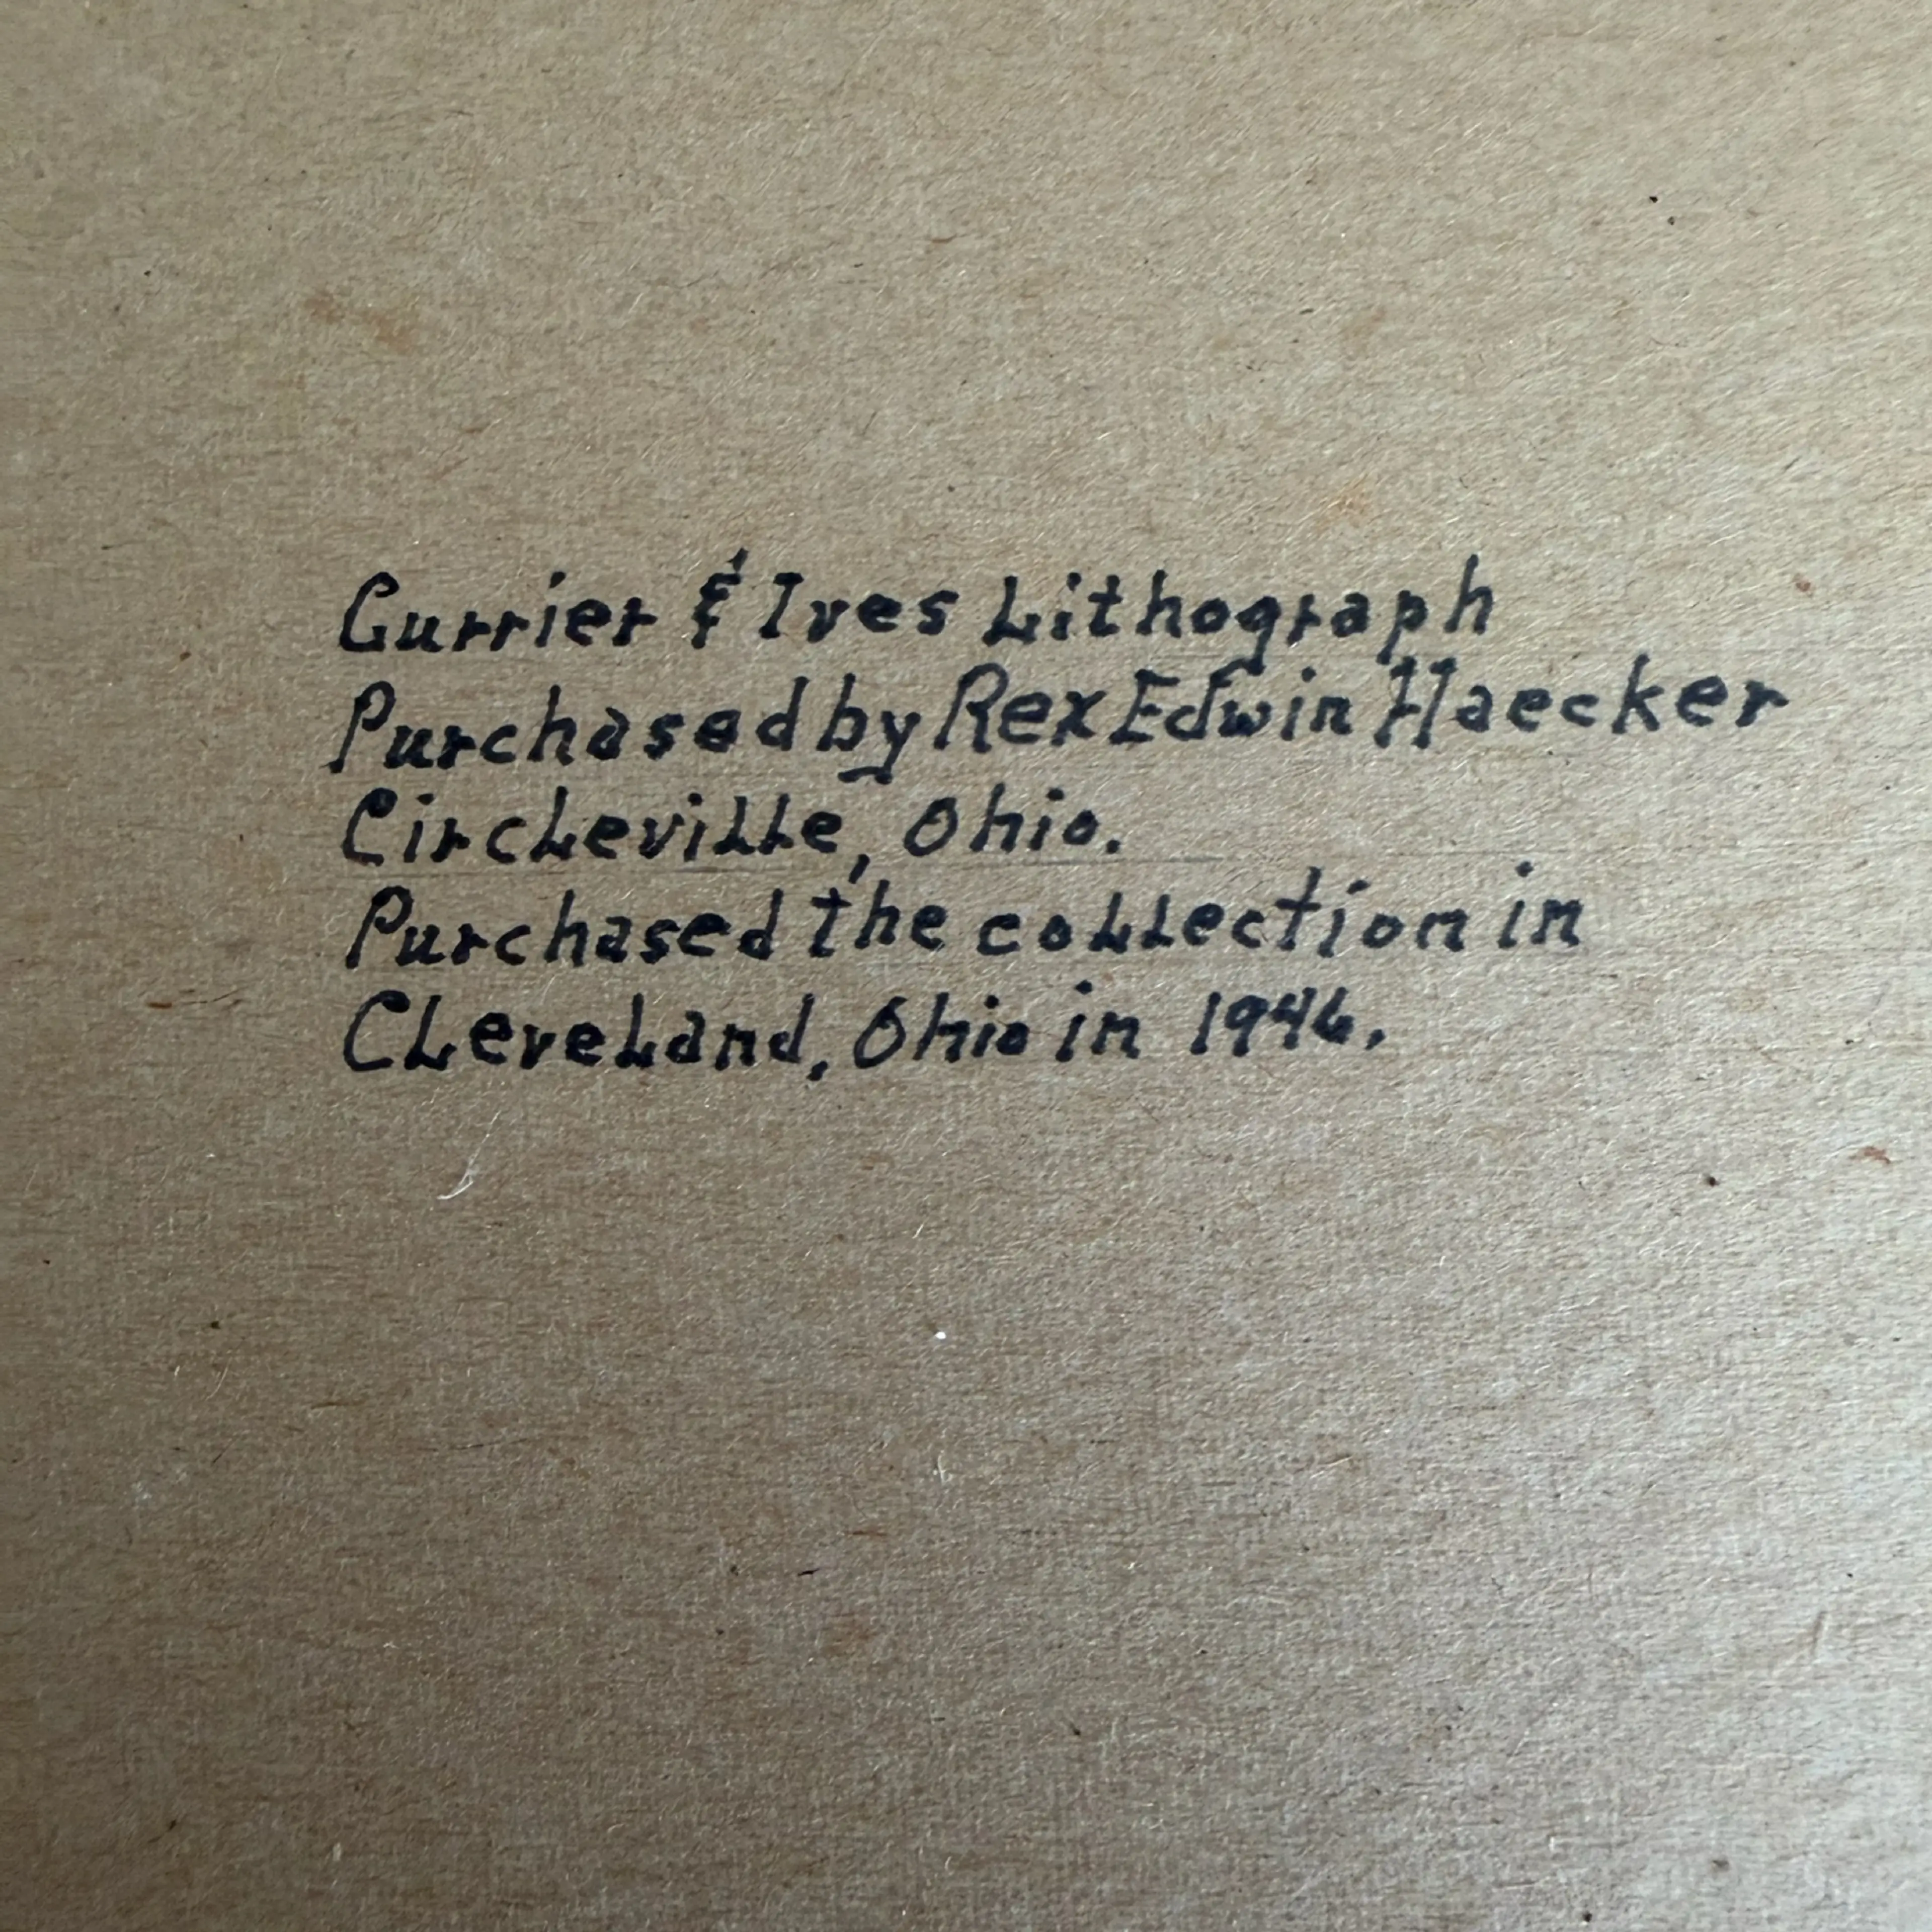 Currier & Ives Lithograph
Purchased by Rex Edwin Haecker
Circleville, Ohio.
Purchased the collection in
Cleveland, Ohio in 1946.